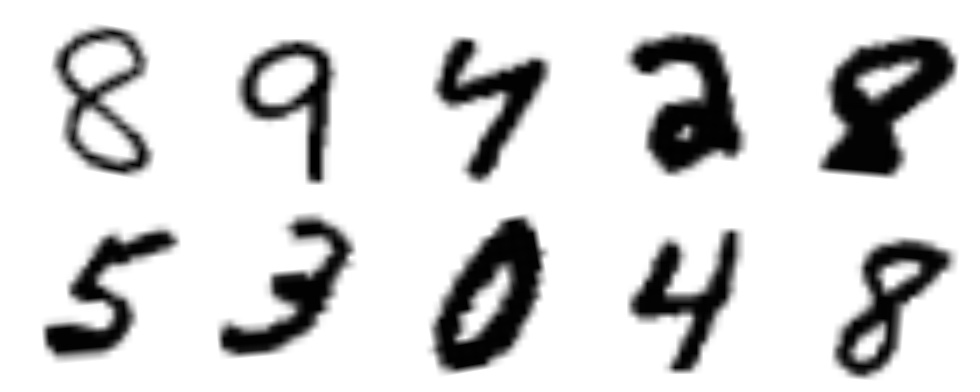 8 9 4 2 8
5 3 0 4 8